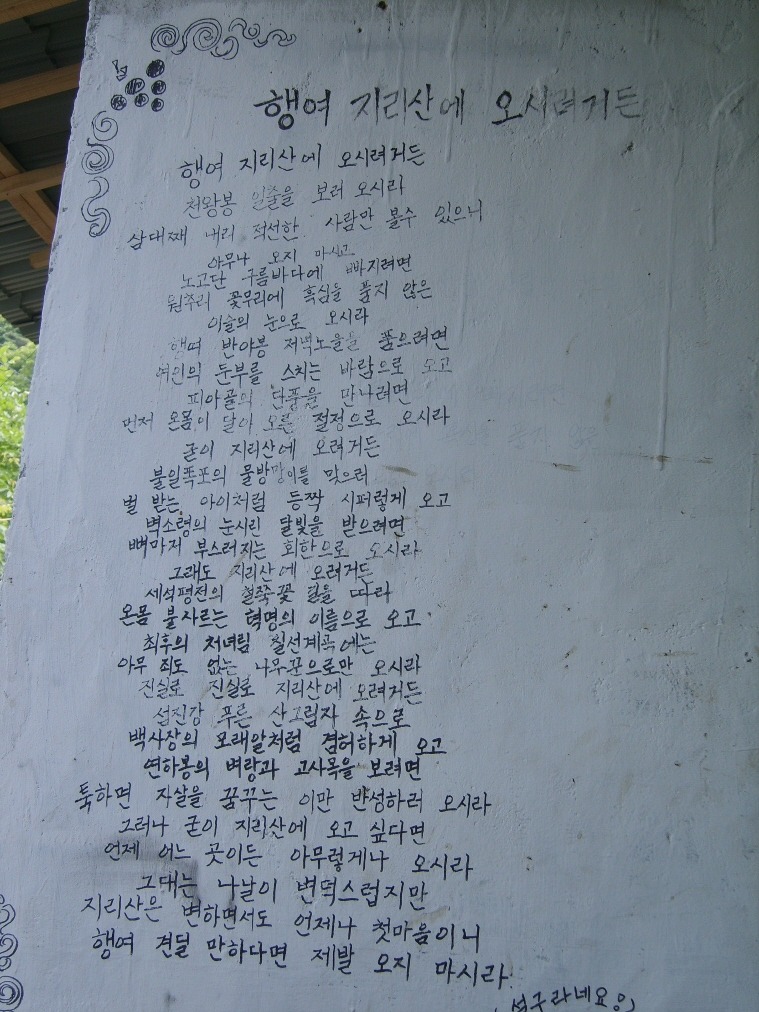 행여 지리산에 오시려거든
행여 지리산에 오시려거든
천왕봉 일출을 보러 오시라
삼대째 내리 적선한 사람만 볼수 있으니
아무나 오지 마시고
노고단 구름바다에 빠지려면
원추리 꽃무리에 흑심을 품지 않은
이슬의 눈으로 오시라
행여 반야봉 저녁노을을 품으려면
여인의 둔부를 스치는 바람으로 오고
피아골의 단풍을 만나려면
먼저 온몸이 달아 오른 절정으로 오시라
굳이 지리산에 오려거든
불일폭포의 물방망이를 맞으러
벌 받는 아이처럼 등짝 시퍼렇게 오고
벽소령의 눈시린 달빛을 받으려면
뼈마저 부스러지는 회한으로 오시라
그래도 지리산에 오려거든
세석평전의 철쭉꽃 길을 따라
온몸 불사르는 혁명의 이름으로 오고
최후의 처녀림 칠선계곡에는
아무 죄도 없는 나무꾼으로만 오시라
진실로 진실로 지리산에 오려거든
섬진강 푸른 산그림자 속으로
백사장의 모래알처럼 겸허하게 오고
연하봉의 벼랑과 고사목을 보려면
툭하면 자살을 꿈꾸는 이만 반성하러 오시라
그러나 굳이 지리산에 오고 싶다면
언제 어느 곳이든 아무렇게나 오시라
그대는 나날이 변덕스럽지만
지리산은 변하면서도 언제나 첫마음이니
행여 견딜 만하다면 제발 오지 마시라